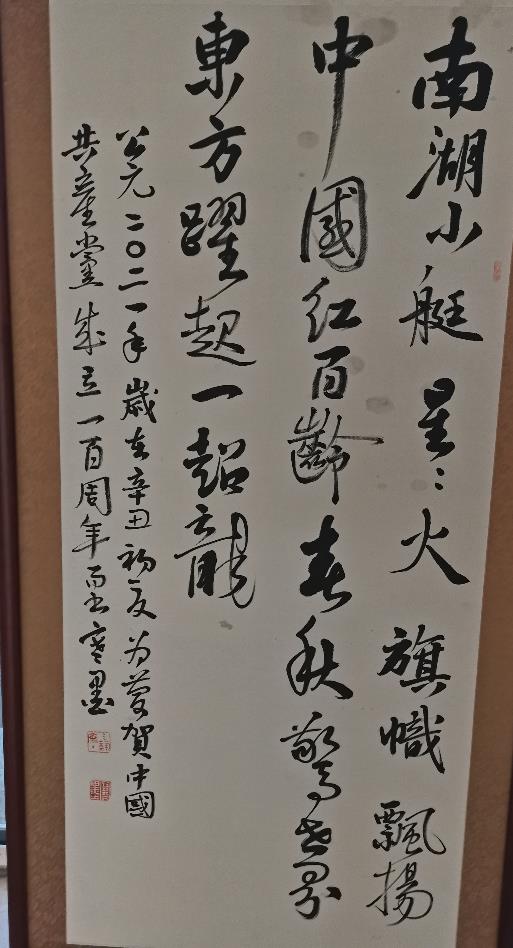 南湖小艇星〻火旗幟飄揚
中國红百齡春秋驚世界
東方躍起一龍
公元二〇二一年歲在辛丑初夏为慶賀中國
共產黨成立一百周年而书寒墨